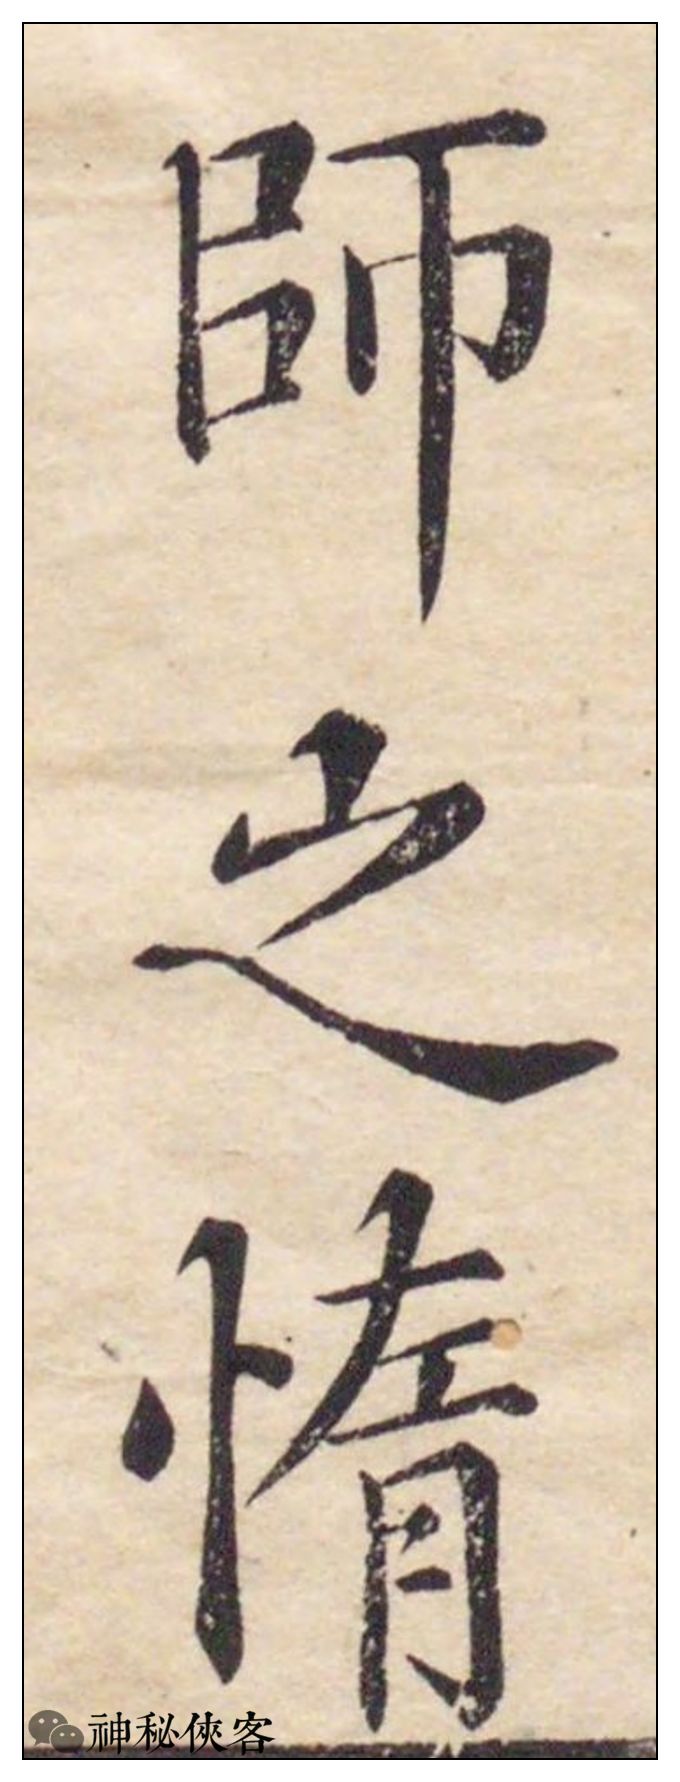 師之惰
神秘俠客